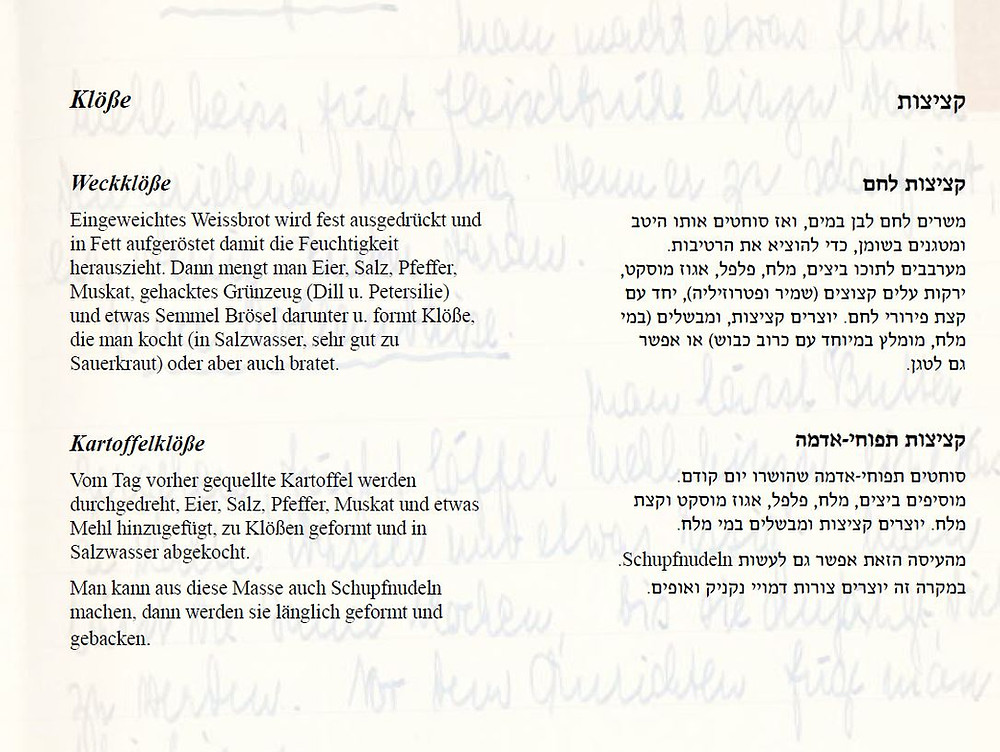 Klöße
Weckklöße
Eingeweichtes Weissbrot wird fest ausgedrückt und
in Fett aufgeröstet damit die Feuchtigkeit
herauszieht. Dann mengt man Eier, Salz, Pfeffer,
Muskat, gehacktes Grünzeug (Dill u. Petersilie)
und etwas Semmel Brösel darunter u. formt Klöße,
die man kocht (in Salzwasser, sehr gut zu
Sauerkraut) oder aber auch bratet.
Kartoffelklöße
Vom Tag vorher gequellte Kartoffel werden
durchgedreht, Eier, Salz, Pfeffer, Muskat und etwas
Mehl hinzugefügt, zu Klößen geformt und in
Salzwasser abgekocht.
Man kann aus diese Masse auch Schupfnudeln
machen, dann werden sie länglich geformt und
gebacken.
קציצות
קציצות לחם
משרים לחם לבן במים, ואז סוחטים אותו היטב
ומטגנים בשומן, כדי להוציא את הרטיבות.
מערבבים לתוכו ביצים, מלח, פלפל, אגוז מוסקט,
ירקות עלים קצוצים (שמיר ופטרוזיליה), יחד עם
קצת פירורי לחם. יוצרים קציצות, ומבשלים (במי
מלח, מומלץ במיוחד עם כרוב כבוש) או אפשר
גם לטגן.
קציצות תפוחי-אדמה
סוחטים תפוחי-אדמה שהושרו יום קודם.
מוסיפים ביצים, מלח, פלפל, אגוז מוסקט וקצת
מלח. יוצרים קציצות ומבשלים במי מלח.
מהעיסה הזאת אפשר גם לעשות Schupfnudeln.
במקרה זה יוצרים צורות דמויי נקניק ואופים.
man macht etwas Fett h.
Mehl heiss, fügt Fleischbrühe hinzu,
Wenn er zu scharf ist,
man lässt Butter
zu werden. Vor dem Anrichten fügt man